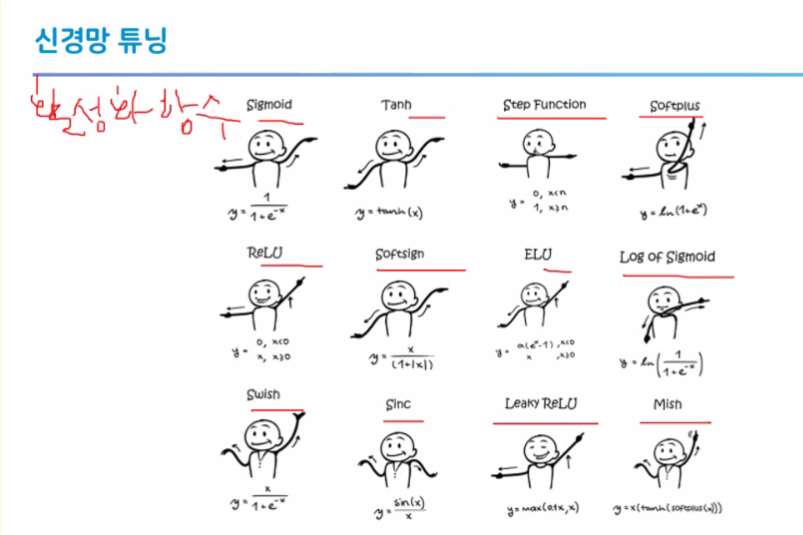 신경망 튜닝
활성화 함수
Sigmoid
y = 1 / (1+e^-x)
Tanh
y = tanh(x)
Step Function
y = 0, x<n
1, x≥n
Softplus
y = ln(1+e^x)
ReLU
y = 0, x<0
x, x≥0
Softsign
y = x / (1+|x|)
ELU
y = α(e^x-1), x<0
x, x≥0
Log of Sigmoid
y = ln(1 / (1+e^-x))
Swish
y = x / (1+e^-x)
Sinc
y = sin(x) / x
Leaky ReLU
y = max(0.1x, x)
Mish
y = x(tanh(softplus(x)))